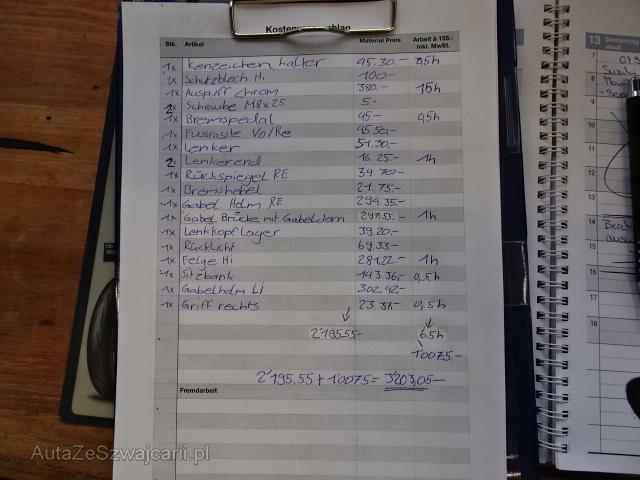 Stk. Artikel Material Preis Arbeit à 155.- inkl. MwSt.
1x Kenzeichem halter 45.30.- 0,5h
1x Schutzblech Hi 100.-
1x Auspuff chrom 380.- 1,5h
2x Schraube M8x25 5.-
1x Bremspedal 45.- 0,5h
1x Fussrasste Vo/Re 45.50.-
1x Lenker 51.30.-
2x Lenkerend 16.25.- 1h
1x Rückspiegel RE 34.70.-
1x Bremshebel 21.75.-
1x Gabel Holm RE 294.35.-
1x Gabel Brücke mit Gabeldorn 297.55.- 1h
1x Lenkkopflager 39.20.-
1x Rücklicht 69.33.-
1x Felge Hi 281.22.- 1h
1x Sitzbank 143.36.- 0,5h
1x Gabelholm LI 302.42.-
1x Griff rechts 23.37.- 0,5h
2'195.55.- 6.5h
1'007.5.-
2'195.55 + 1'007.5 = 3'203.05.-
Fremdarbeit
AutaZeSzwajcarii.pl
13 Donnerstag
Jeudi
7
8
9
10
11
12
14
15
16
17
18